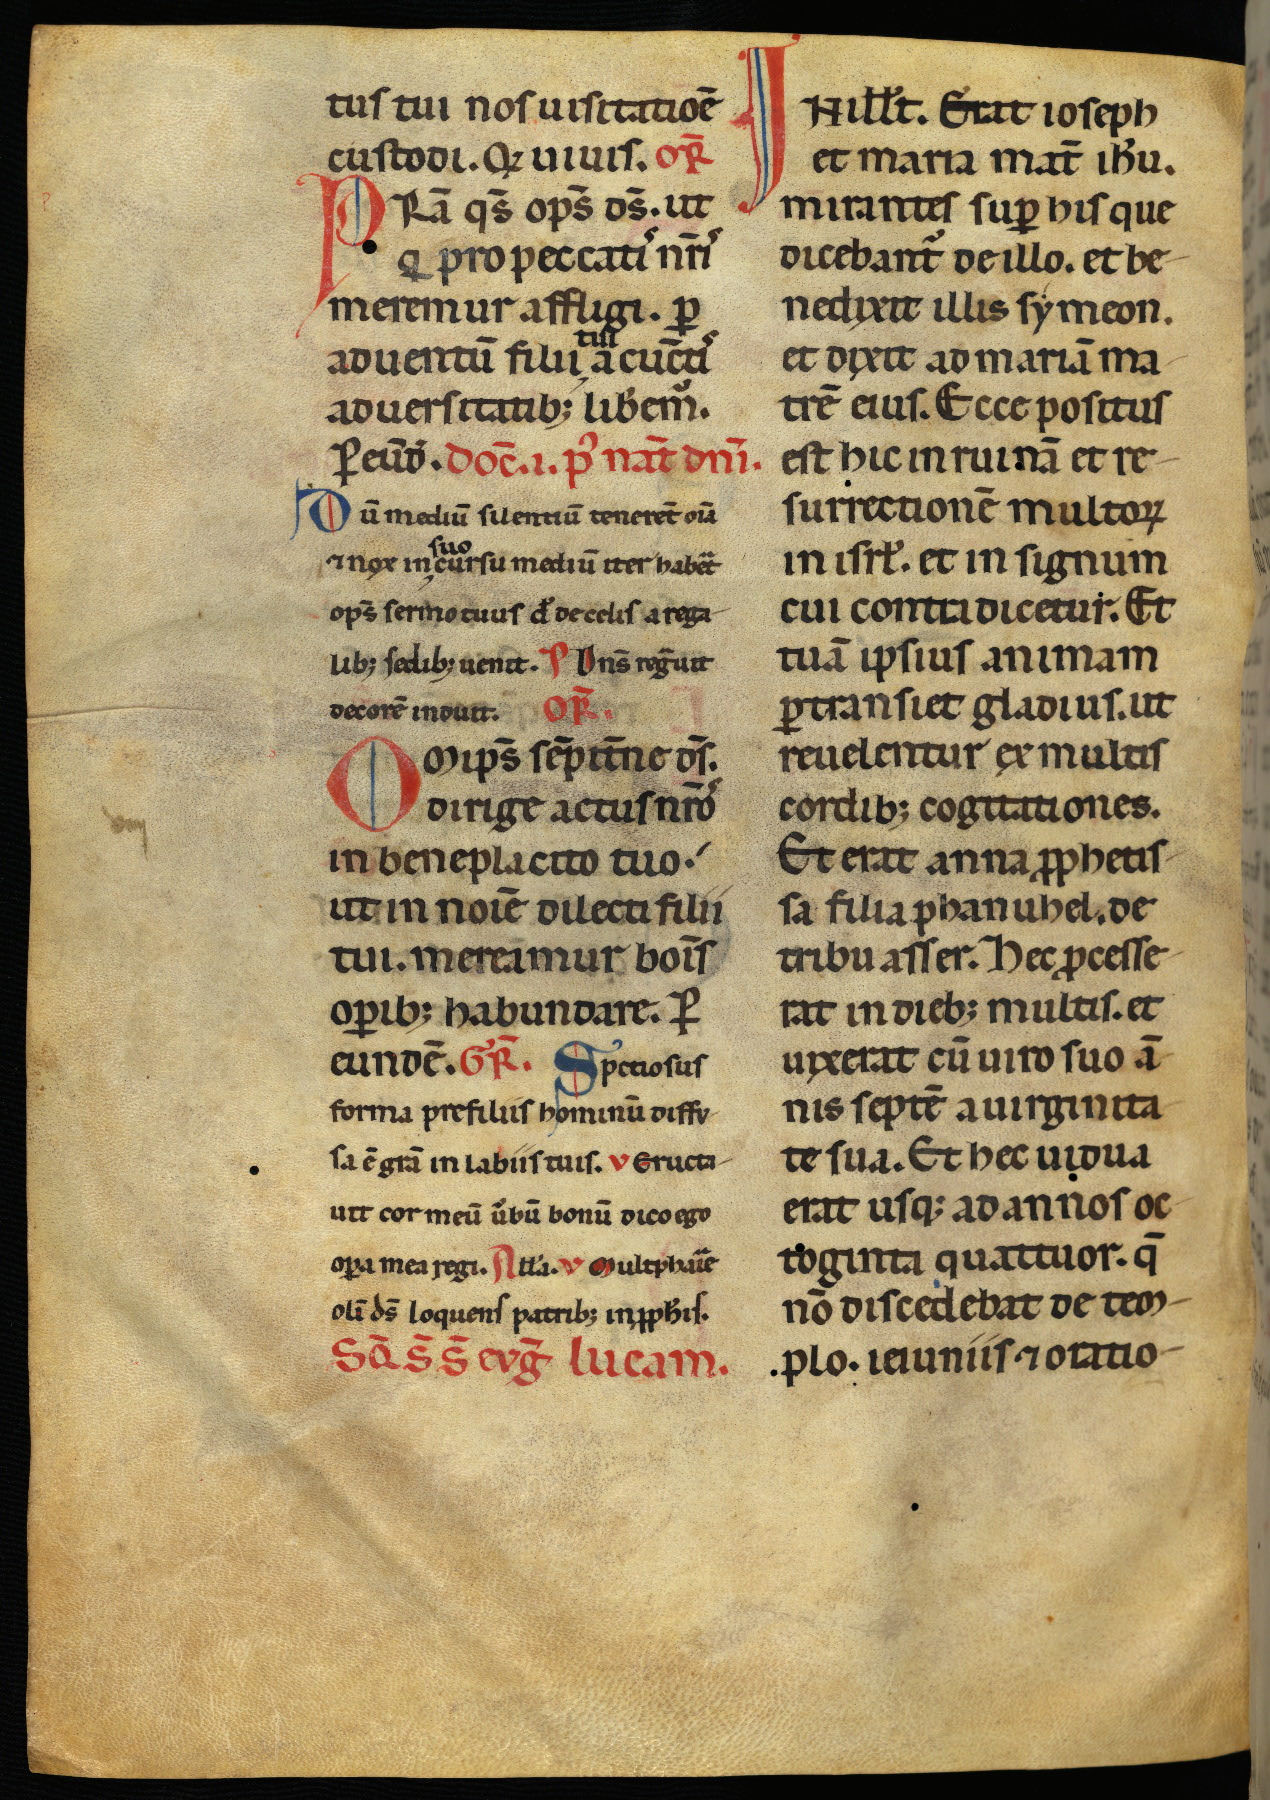 tus tui nos uisitatioē
custodi. Qꝛ uiuis. OR̄
PRā qs̄ op̄s d̄s. ut
q pro peccatiˢ nr̄iˢ
meremur affligi. ꝑ
aduentū filii tui a cūctiˢ
aduersitatib; lib̄em̄ꝰ.
P eūd̄. Doc̄. i. p̾ nat̄ dn̄i.
Dū mediū silentiū teneret̄ oīa
⁊ nox in suo cursu mediū iter habet̄
op̄s sermo tuus d̄ de celis a rega
lib; sedib; uenit. P Dn̄s regͣuit
decorē induit. OR̄.
Omip̄s sēpit̄ne d̄s.
dirige actus nr̄oˢ
in beneplacito tuo.
ut in noīe dilecti filii
tui. mereamur boīs
oꝑib; habundare. P
eundē. GR̄. Spctiosus
forma pre filiis hominū diffv
sa ē gr̄a in labiis tuis. v Eructa
uit cor meū ūbū bonū dico ego
oꝑa mea regi. All̄a. v Multiphaīe
oli d̄s loquens patrib; in ꝓph̄is.
Sc̄d̄ S̄ S̄ evḡ lucam.
IN ill̄t. Erat ioseph
et maria mat̄ ih̄u.
mirantes suꝑ his que
dicebant̄ꝰ de illo. et be
nedixit illis symeon.
et dixit ad mariā ma
trē eius. Ecce positus
est hic in ruinā et re
surrectionē multoꝝ
in isrl̄. et in signum
cui contradicetur. Et
tuā ipsius animam
ꝑtransiet gladius. ut
reuelentur ex multis
cordib; cogitationes.
Et erat anna ꝓphetis
sa filia phanuhel. de
tribu asser. Hec ꝓcesse
rat in dieb; multis. et
uixerat cū uiro suo ā
nis septē a uirginita
te sua. Et hec uidua
erat usq; ad annos oc
toginta quattuor. q̄
nō discedebat de tem
plo. ieiuniis ⁊ oratio